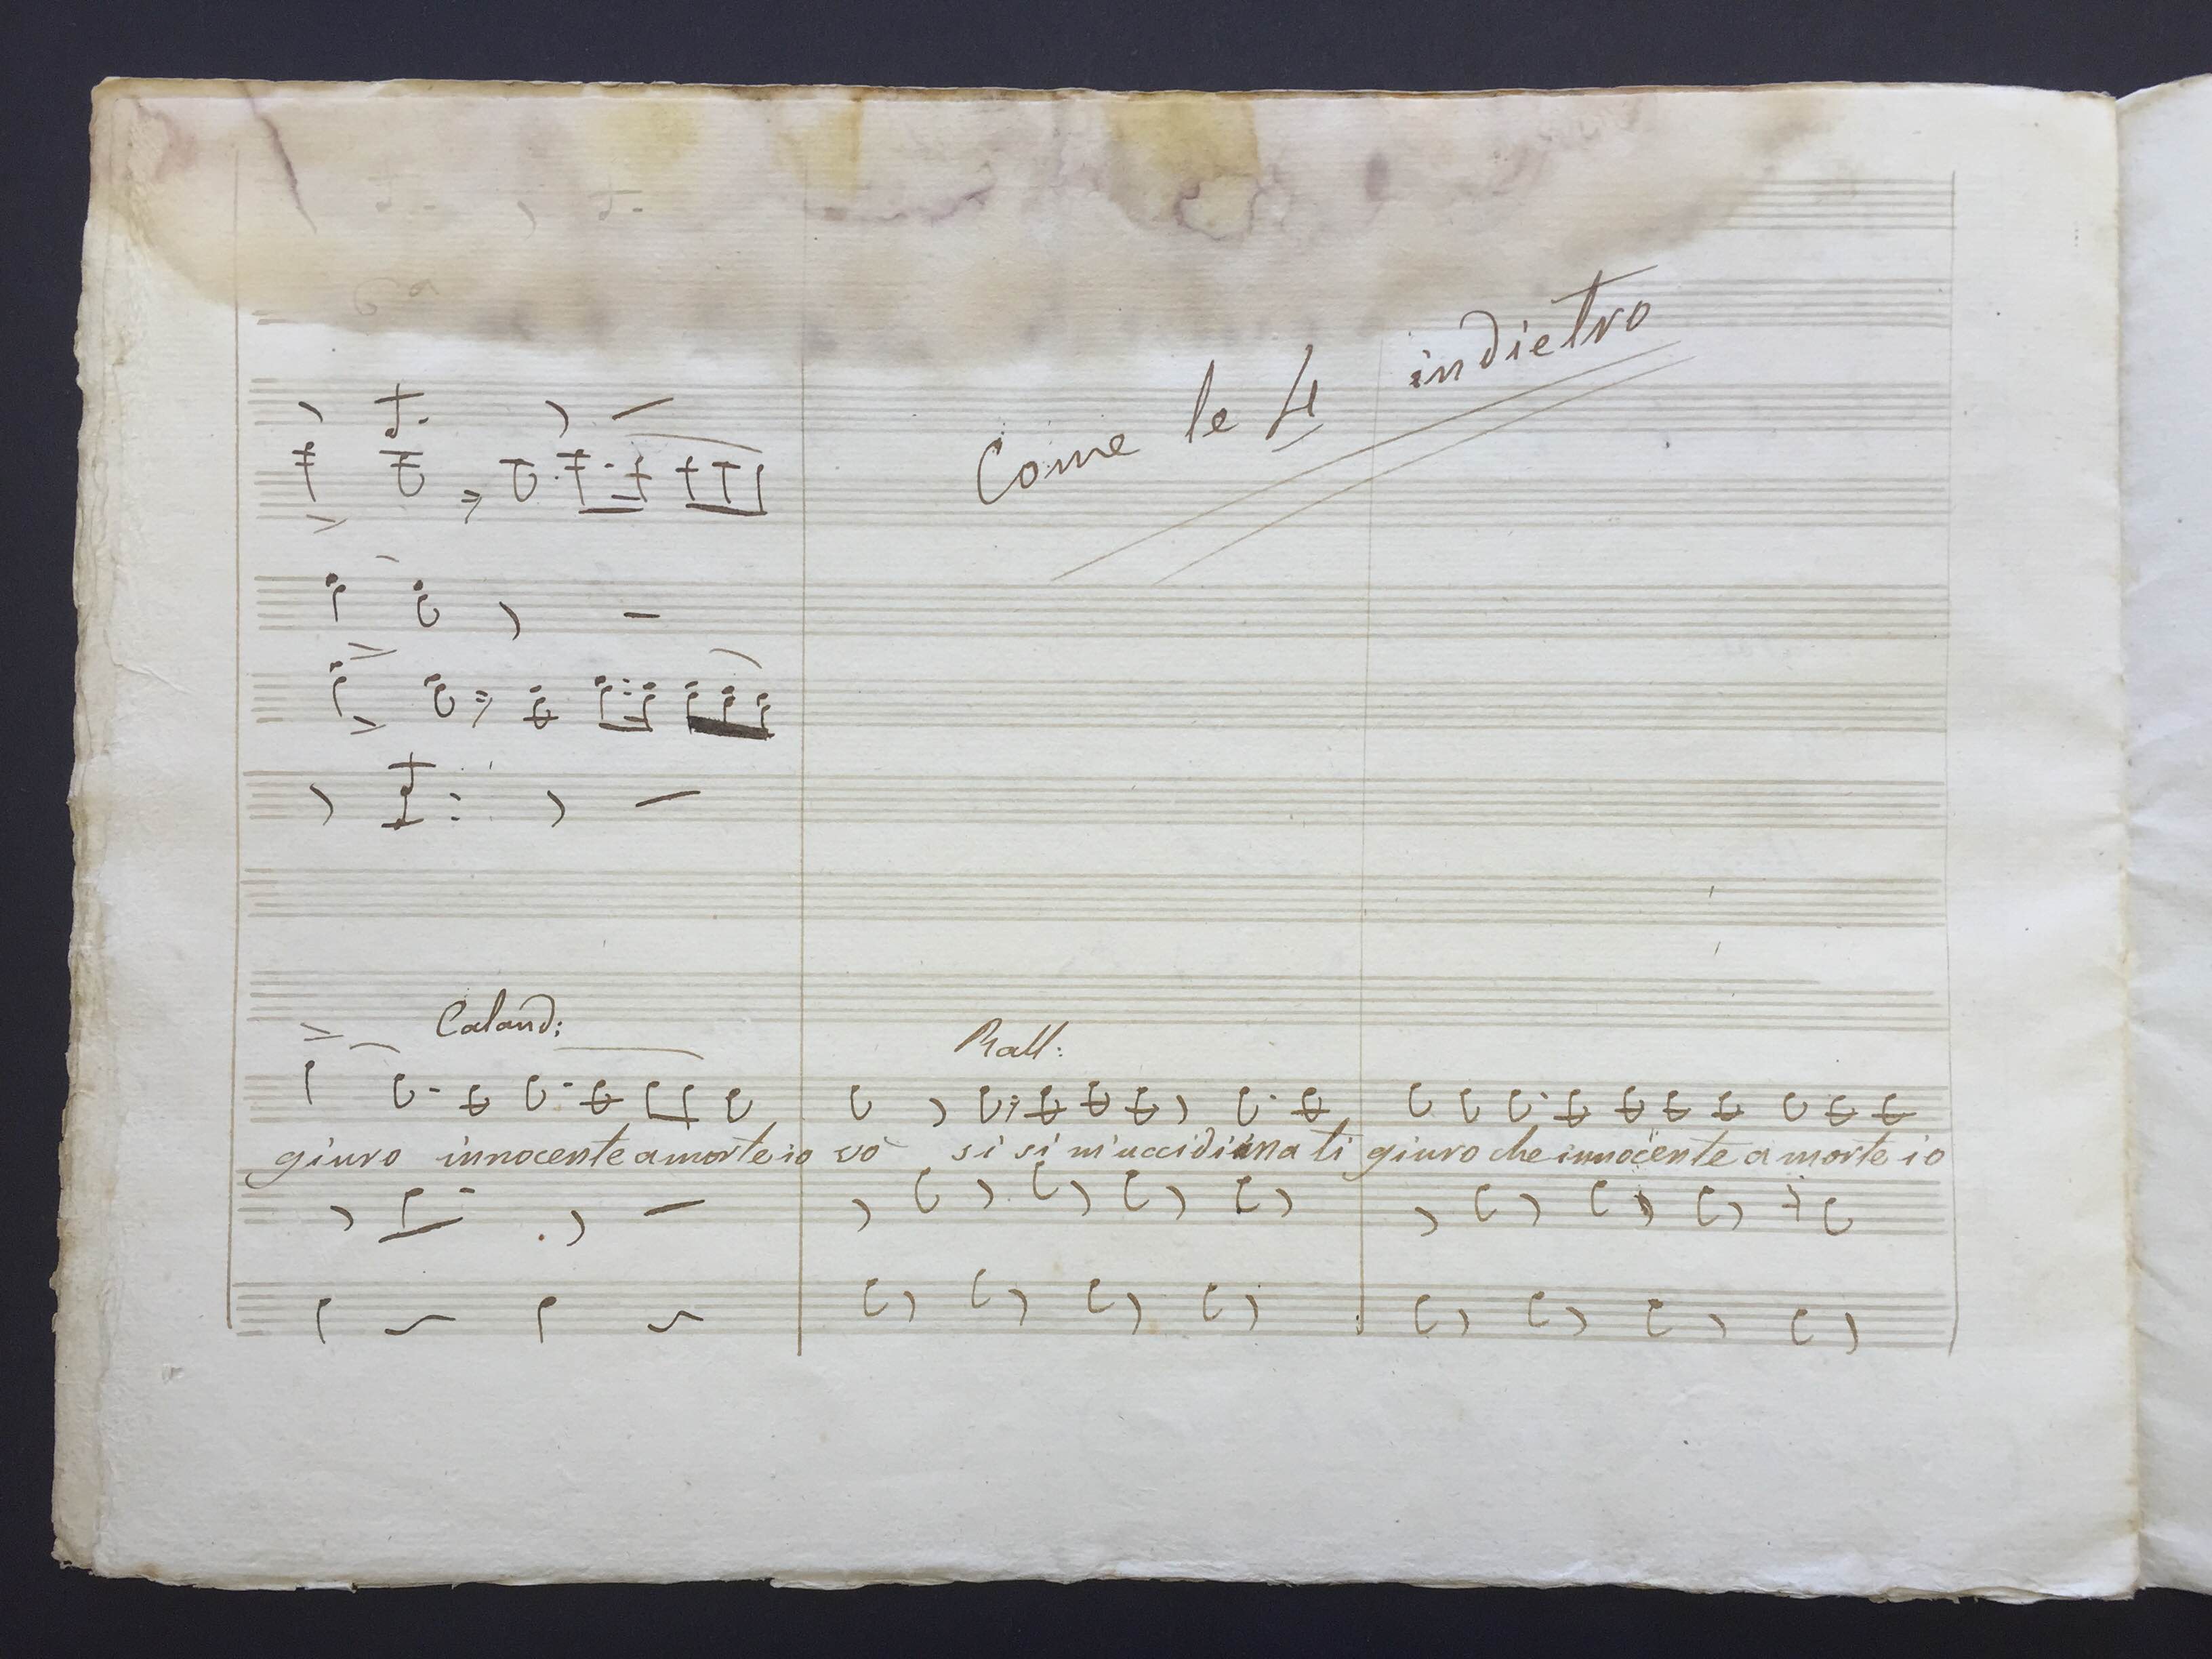 6ª
Come le 4 indietro
Caland:
Rall:
giuro innocente a morte io vò si si m'uccidi ma ti giuro che innocente a morte io